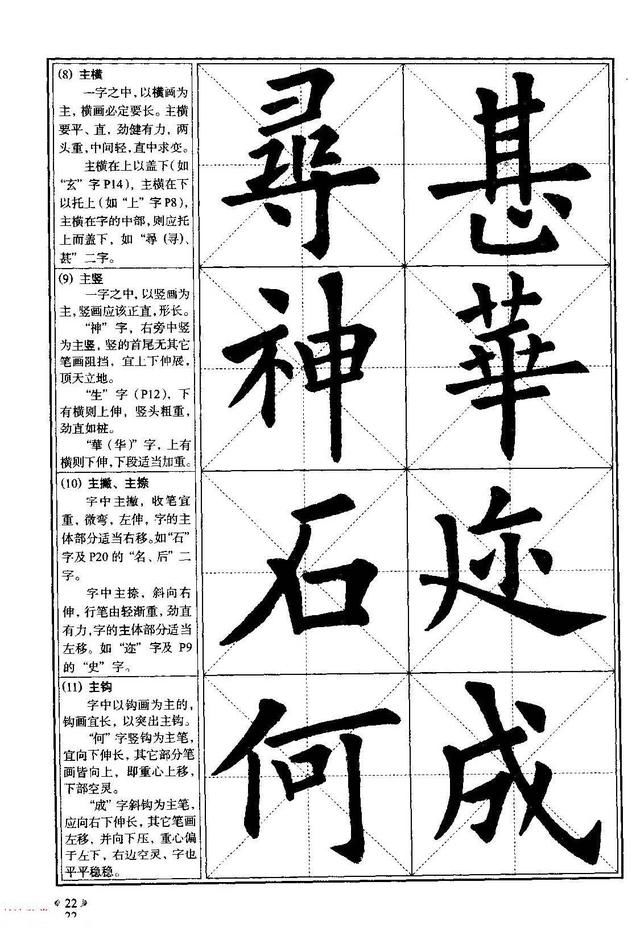 (8) 主横
一字之中，以横画为
主，横画必定要长。主横
要平、直，劲健有力，两
头重，中间轻，直中求变。
主横在上以盖下（如
“玄”字P14），主横在下
以托上（如“上”字P8），
主横在字的中部，则应托
上而盖下，如“尋（寻）、
甚”二字。
尋 甚
(9) 主竖
一字之中，以竖画为
主，竖画应该正直，形长。
“神”字，右旁中竖
为主竖，竖的首尾无其它
笔画阻挡，宜上下伸展，
顶天立地。
“生”字（P12），下
有横则上伸，竖头粗重，
劲直如桩。
“華（华）”字，上有
横则下伸，下段适当加重。
神 華
(10) 主撇、主捺
字中主撇，收笔宜
重，微弯，左伸，字的主
体部分适当右移。如“石”
字及P20的“名、后”二
字。
字中主捺，斜向右
伸，行笔由轻渐重，劲直
有力，字的主体部分适当
左移。如“迩”字及 P9
的“史”字。
石 迩
(11) 主钩
字中以钩画为主的，
钩画宜长，以突出主钩。
“何”字竖钩为主笔，
宜向下伸长，其它部分笔
画皆向上，即重心上移，
下部空灵。
“成”字斜钩为主笔，
应向右下伸长，其它笔画
左移，并向下压，重心偏
于左下，右边空灵、字也
平平稳稳。
何 成
22
22